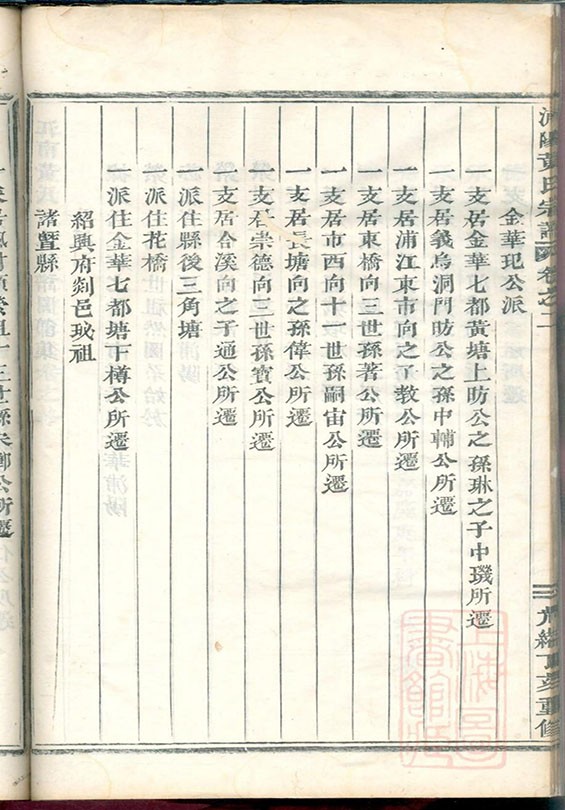 黃氏宗譜 卷之二
金華玘公派
一支居金華七都黃塘上昉公之孫琳之子中璣所遷
一支居義烏洞門昉公之孫中輔公所遷
一支居浦江東市向之子教公所遷
一支居東橋向三世孫著公所遷
一支居市西向十一世孫嗣宙公所遷
一支居長塘向之孫偉公所遷
一支居崇德向三世孫寳公所遷
一支居合溪向之子通公所遷
一派住縣後三角塘
一派住花橋
一派住金華七都塘下樽公所遷
紹興府剡邑玫祖
諸暨縣
十三世孫 公所遷
光緒丁亥重修
上海圖書館藏